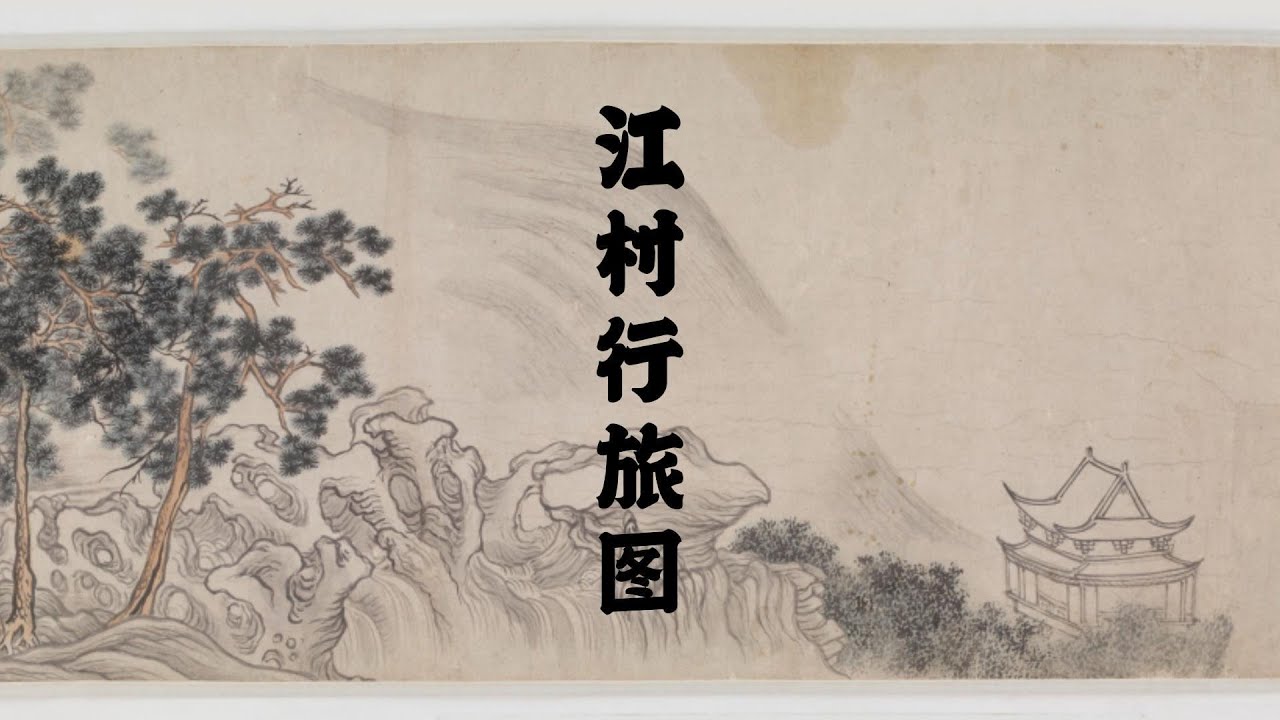 江村行旅图